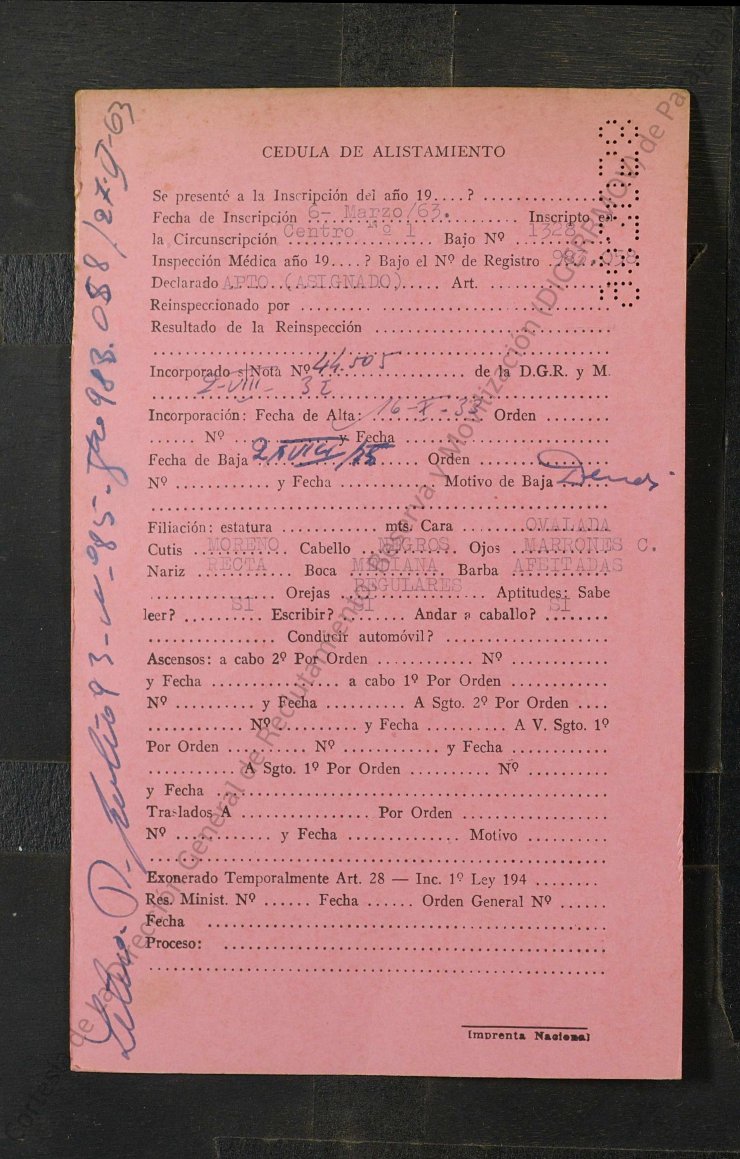 CEDULA DE ALISTAMIENTO
Se presentó a la Inscripción del año 19....? ..................
Fecha de Inscripción 6- Marzo/63. Inscripto en
la Circunscripción Centro Nº 1 Bajo Nº 1328
Inspección Médica año 19....? Bajo el Nº de Registro 983.058
Declarado APTO (ASIGNADO) Art. ..................
Reinspeccionado por ..................
Resultado de la Reinspección ..................
Incorporado s|Nota Nº 44.505 de la D.G.R. y M.
2-VIII-
Incorporación: Fecha de Alta: 16-X- Orden ..........
...... Nº .......... y Fecha ..................
Fecha de Baja .......... Orden ..........
Nº .......... y Fecha .......... Motivo de Baja
Filiación: estatura .......... mts. Cara OVALADA
Cutis MORENO Cabello NEGROS Ojos MARRONES C.
Nariz RECTA Boca MEDIANA Barba AFEITADAS
.......... Orejas REGULARES Aptitudes: Sabe
leer? SI Escribir? SI Andar a caballo? SI
.......... Conducir automóvil? ..................
Ascensos: a cabo 2º Por Orden .......... Nº ..........
y Fecha .......... a cabo 1º Por Orden ..........
Nº .......... y Fecha .......... A Sgto. 2º Por Orden ....
.......... Nº .......... y Fecha .......... A V. Sgto. 1º
Por Orden .......... Nº .......... y Fecha ..........
.......... A Sgto. 1º Por Orden .......... Nº ..........
y Fecha ..................
Traslados A .......... Por Orden ..........
Nº .......... y Fecha .......... Motivo ..........
Exonerado Temporalmente Art. 28 — Inc. 1º Ley 194 ........
Res. Minist. Nº ...... Fecha ...... Orden General Nº ......
Fecha ..................
Proceso: ..................
Imprenta Nacional
93-Nº 85- 983.058/27-V-63
Cortesía de la Dirección General de Reclutamiento, Reserva y Movilización (DIGERRMOV) de Paraguay